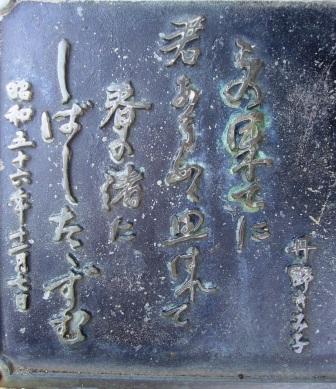 丹野きみ子
この果てに
君ある如く思はれて
春の渚に
しばしたゝずむ
昭和五十六年十二月七日